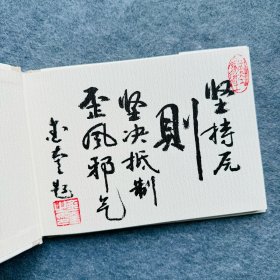 坚持原
则
坚决抵制
歪风邪气